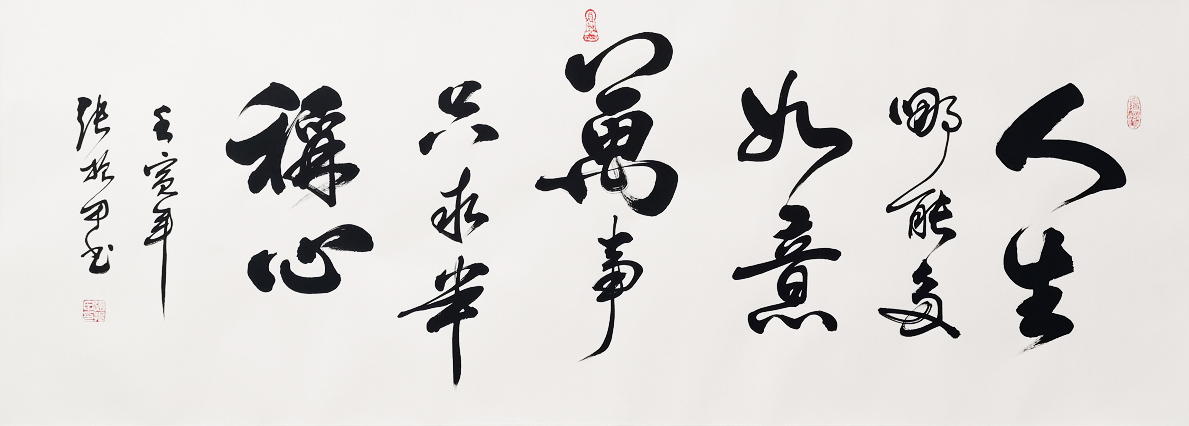 人生
哪能多
如意
萬事
只求半
稱心
壬寅年
张於甲书